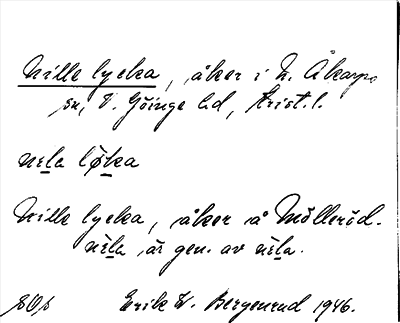 Nille lycka, åker i N. Åkarps
sn, V. Göinge hd, Krist. l.
nıla lø̱ka
Nille lycka, åker å Mölleröd.
nìla, är gen. av nìla.
Erik W. Bergenrud 1946.